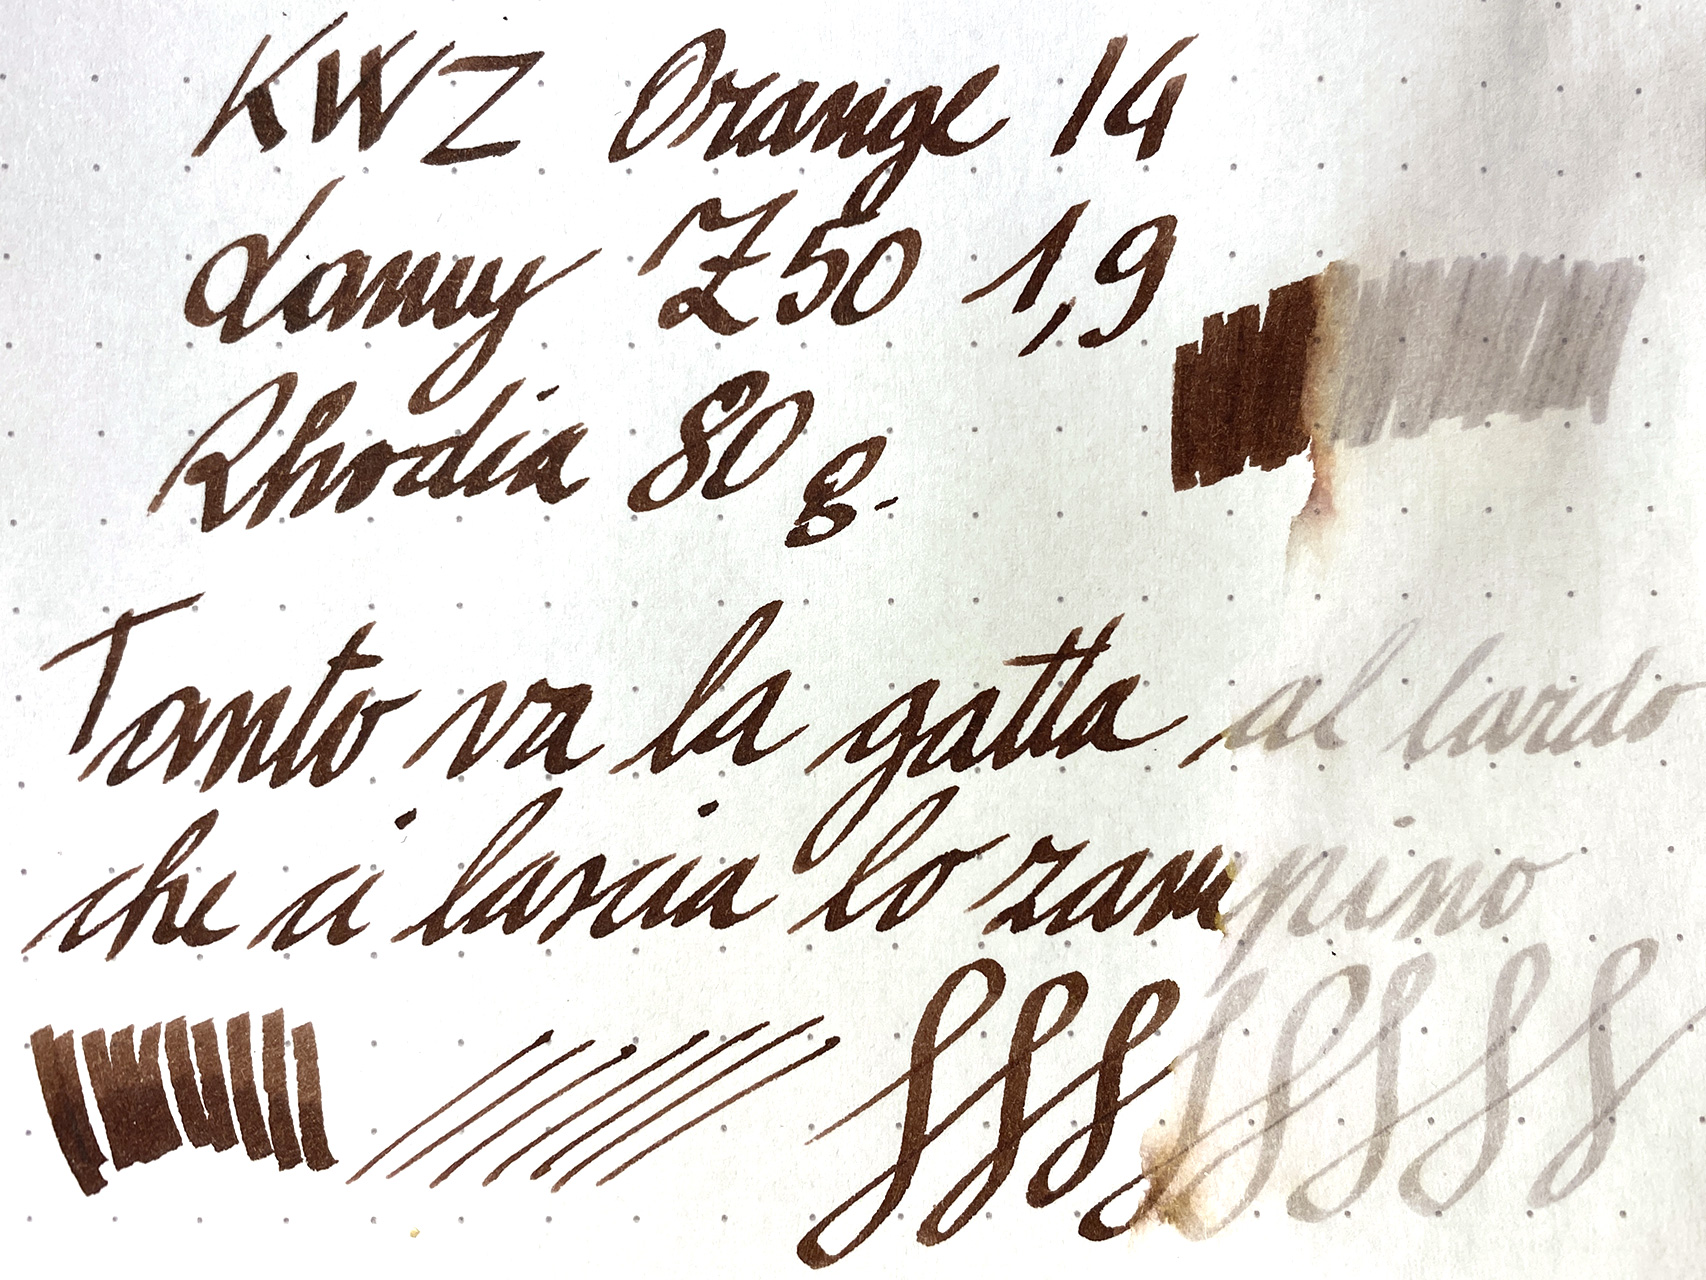 KWZ Orange 14
Lamy Z50 1,9
Rhodia 80 g.
Tanto va la gatta al lardo
che ci lascia lo zampino